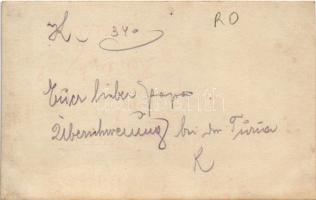 K. 340
RO
Euer lieber Papa
Überschwemmung bei der
K